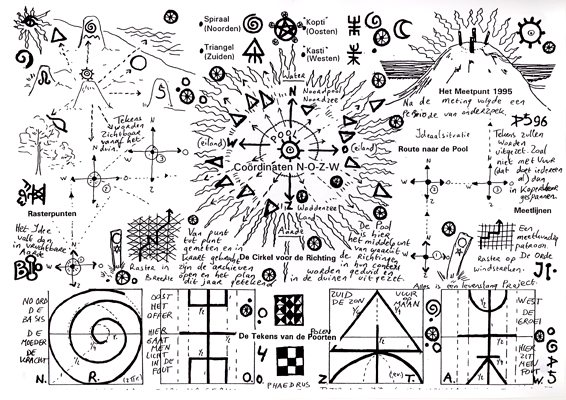 Spiraal
(Noorden)
Kopti
(Oosten)
Triangel
(Zuiden)
Kasti
(Westen)
Water
Noordpool
Noordzee
N
POOL
(eiland)
W
(eiland)
Coördinaten N-O-Z-W
Z
Waddenzee
Land
Aarde
De Cirkel voor de Richting
Het Meetpunt 1995
Na de meting volgde een
periode van onderzoek.
P596
Ideaalsituatie
Route naar de Pool
Tekens zullen
worden
uitgezet. Zoal
niet met Vuur
(dat doet iedereen
al) dan
in Koperdraad
gespannen.
Meetlijnen
Een
meetkundig
patroon.
Raster op De Orde
windstreken.
Alles is een levenslang Project.
Tekens
worden
zichtbaar
vanaf het
duin.
Rasterpunten
Het Idee
valt dan
in vruchtbare
Aarde
Raster in
Breedte
Van punt
tot punt
gemeten en in
kaart gebracht
zijn de archieven
open en het plan
dit jaar getekend
De Pool
is hier
het middelpunt
van waaruit
de Richtingen
in context
worden geduid en
in de duinen uitgezet.
NOORD
DE
BASIS
DE
MOEDER
DE
KRACHT
N.
R.
OOST
HET
OFFER
HIER
GAAT
MEN
LICHT
IN DE
FOUT
O.
De Tekens van de Poorten
PHAEDRUS
ZUID
DE ZON
VUUR
DE
MAAN
POLEN
Z
T.
A.
WEST
DE
GROEI
HIER
ZIT
MEN
FOUT
W.